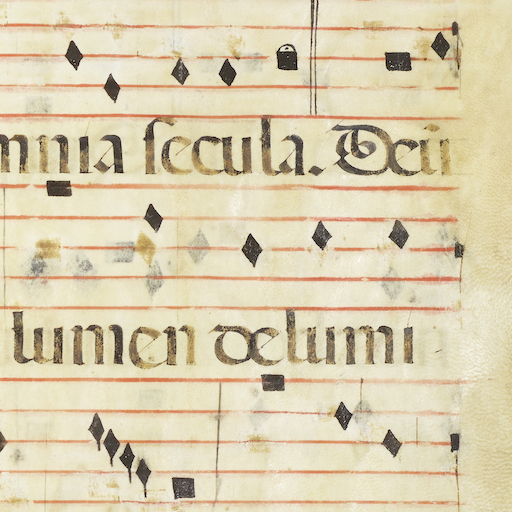 mnia secula. Deū
lumen de lumi